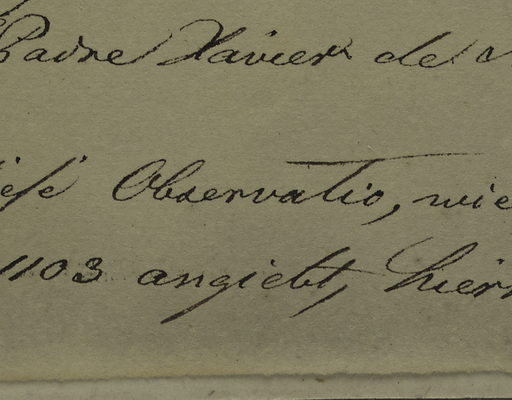 Padre Xavier de
Observatio, wie
1103 angiebt, hier